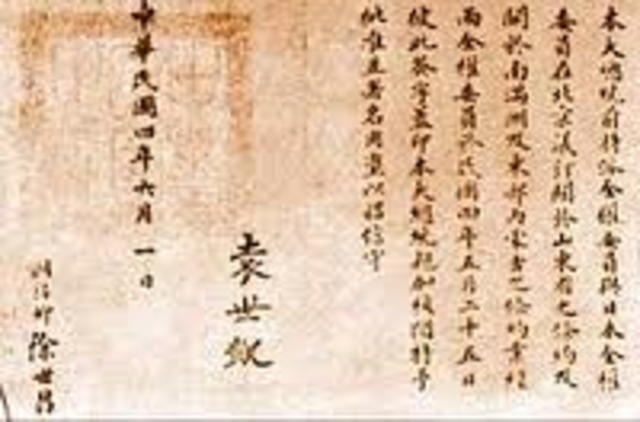 本大總統前特派全權委員與日本全權
委員在北京議訂關於山東省之條約及
關於南滿洲及東部內蒙古之條約業經
兩全權委員於民國四年五月二十五日
彼此簽字蓋印本大總統親加核閱特予
批准並署名用璽以昭信守
袁世凱
中華民國四年六月一日
徐世昌